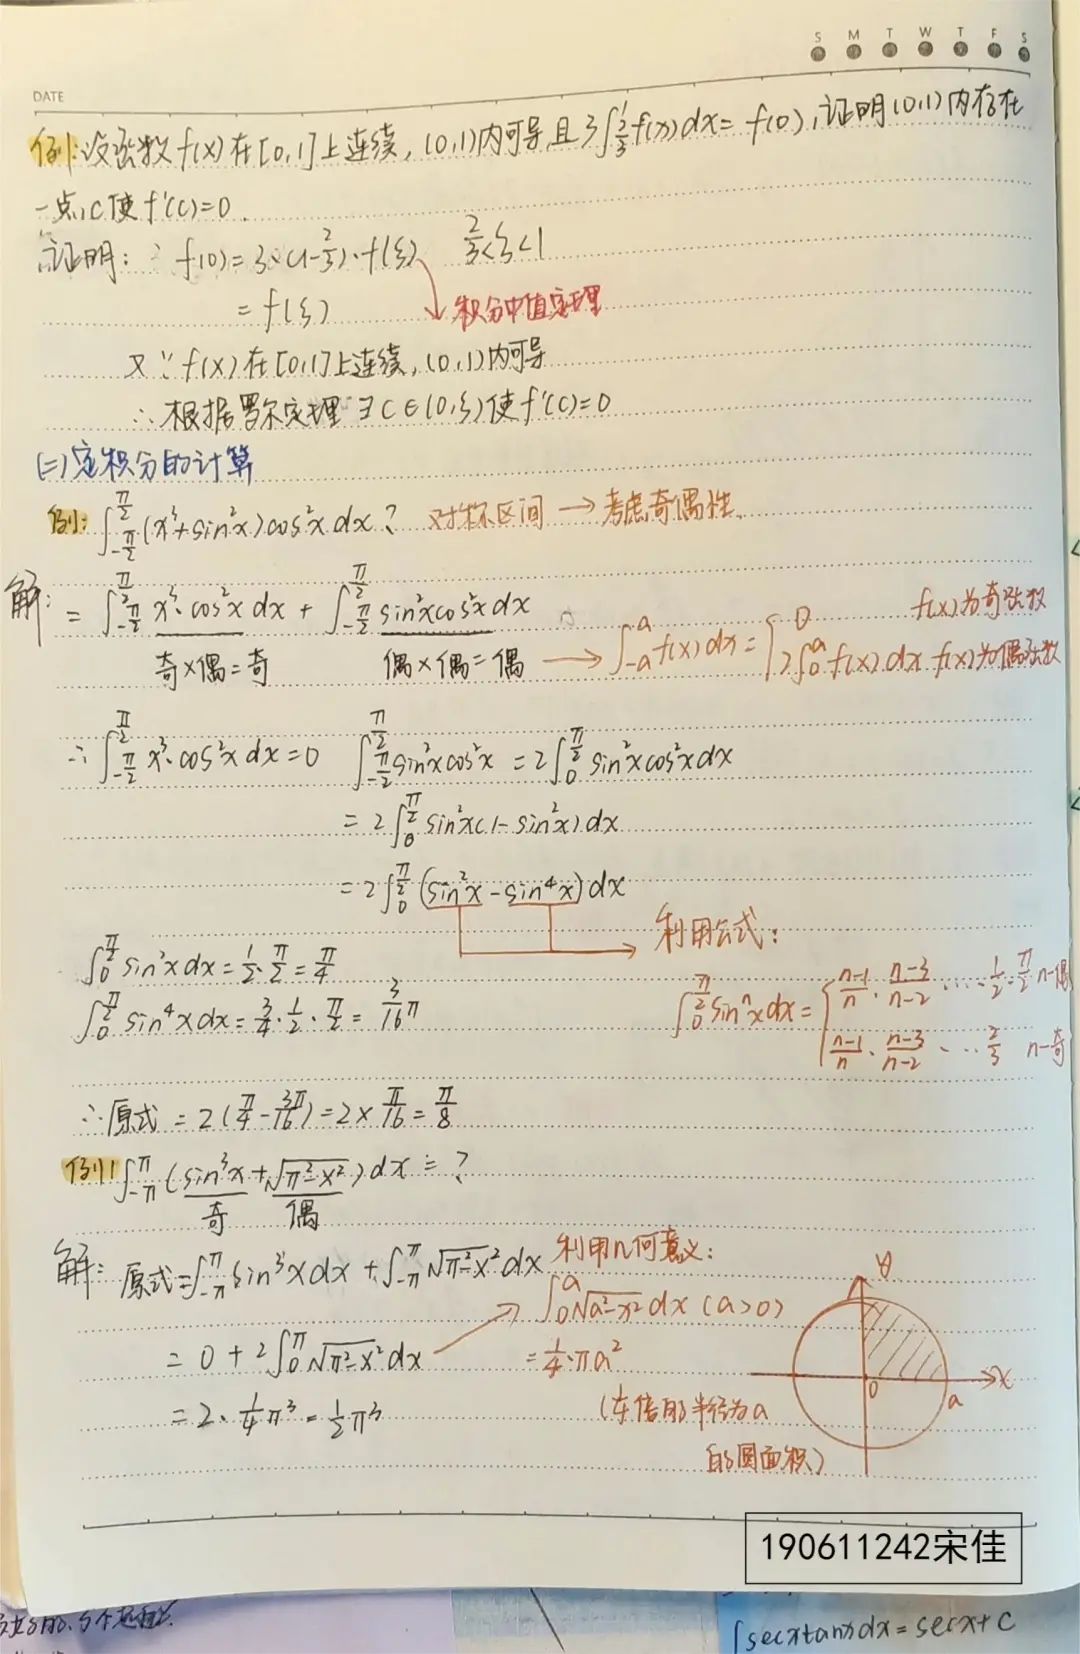 S M T W T F S
DATE
例1:设函数f(x)在[0,1]上连续,(0,1)内可导,且3∫_{2/3}^{1}f(x)dx=f(0),证明(0,1)内存在
一点c使f'(c)=0.
证明:∵f(0)=3·(1-2/3)·f(ξ) 2/3<ξ<1
=f(ξ) 积分中值定理
又∵f(x)在[0,1]上连续,(0,1)内可导
∴根据罗尔定理∃c∈(0,ξ)使f'(c)=0
(二)定积分的计算
例1:∫_{-π/2}^{π/2}(x³+sin²x)cos²xdx? 对称区间→考虑奇偶性.
解:=∫_{-π/2}^{π/2}x³·cos²xdx+∫_{-π/2}^{π/2}sin²xcos²xdx
奇×偶=奇 偶×偶=偶→∫_{-a}^{a}f(x)dx={0 f(x)为奇函数
2∫_{0}^{a}f(x)dx f(x)为偶函数
∴∫_{-π/2}^{π/2}x³·cos²xdx=0 ∫_{-π/2}^{π/2}sin²xcos²x=2∫_{0}^{π/2}sin²xcos²xdx
=2∫_{0}^{π/2}sin²x(1-sin²x)dx
=2∫_{0}^{π/2}(sin²x-sin⁴x)dx
利用公式:
∫_{0}^{π/2}sin²xdx=1/2·π/2=π/4
∫_{0}^{π/2}sin⁴xdx=3/4·1/2·π/2=3/16π
∫_{0}^{π/2}sinⁿxdx={(n-1)/n·(n-3)/(n-2)·…·1/2·π/2 n-偶
(n-1)/n·(n-3)/(n-2)·…2/3 n-奇
∴原式=2(π/4-3π/16)=2×π/16=π/8
例1∫_{-π}^{π}(sin³x+√(π²-x²))dx=?
奇 偶
解:原式=∫_{-π}^{π}sin³xdx+∫_{-π}^{π}√(π²-x²)dx 利用几何意义:
∫_{0}^{a}√(a²-x²)dx(a>0)
=0+2∫_{0}^{π}√(π²-x²)dx =1/4·πa²
=2·1/4π³=1/2π³ 半径为a
的圆面积)
y
x
0
a
190611242宋佳
∫secxtanxdx=secx+C